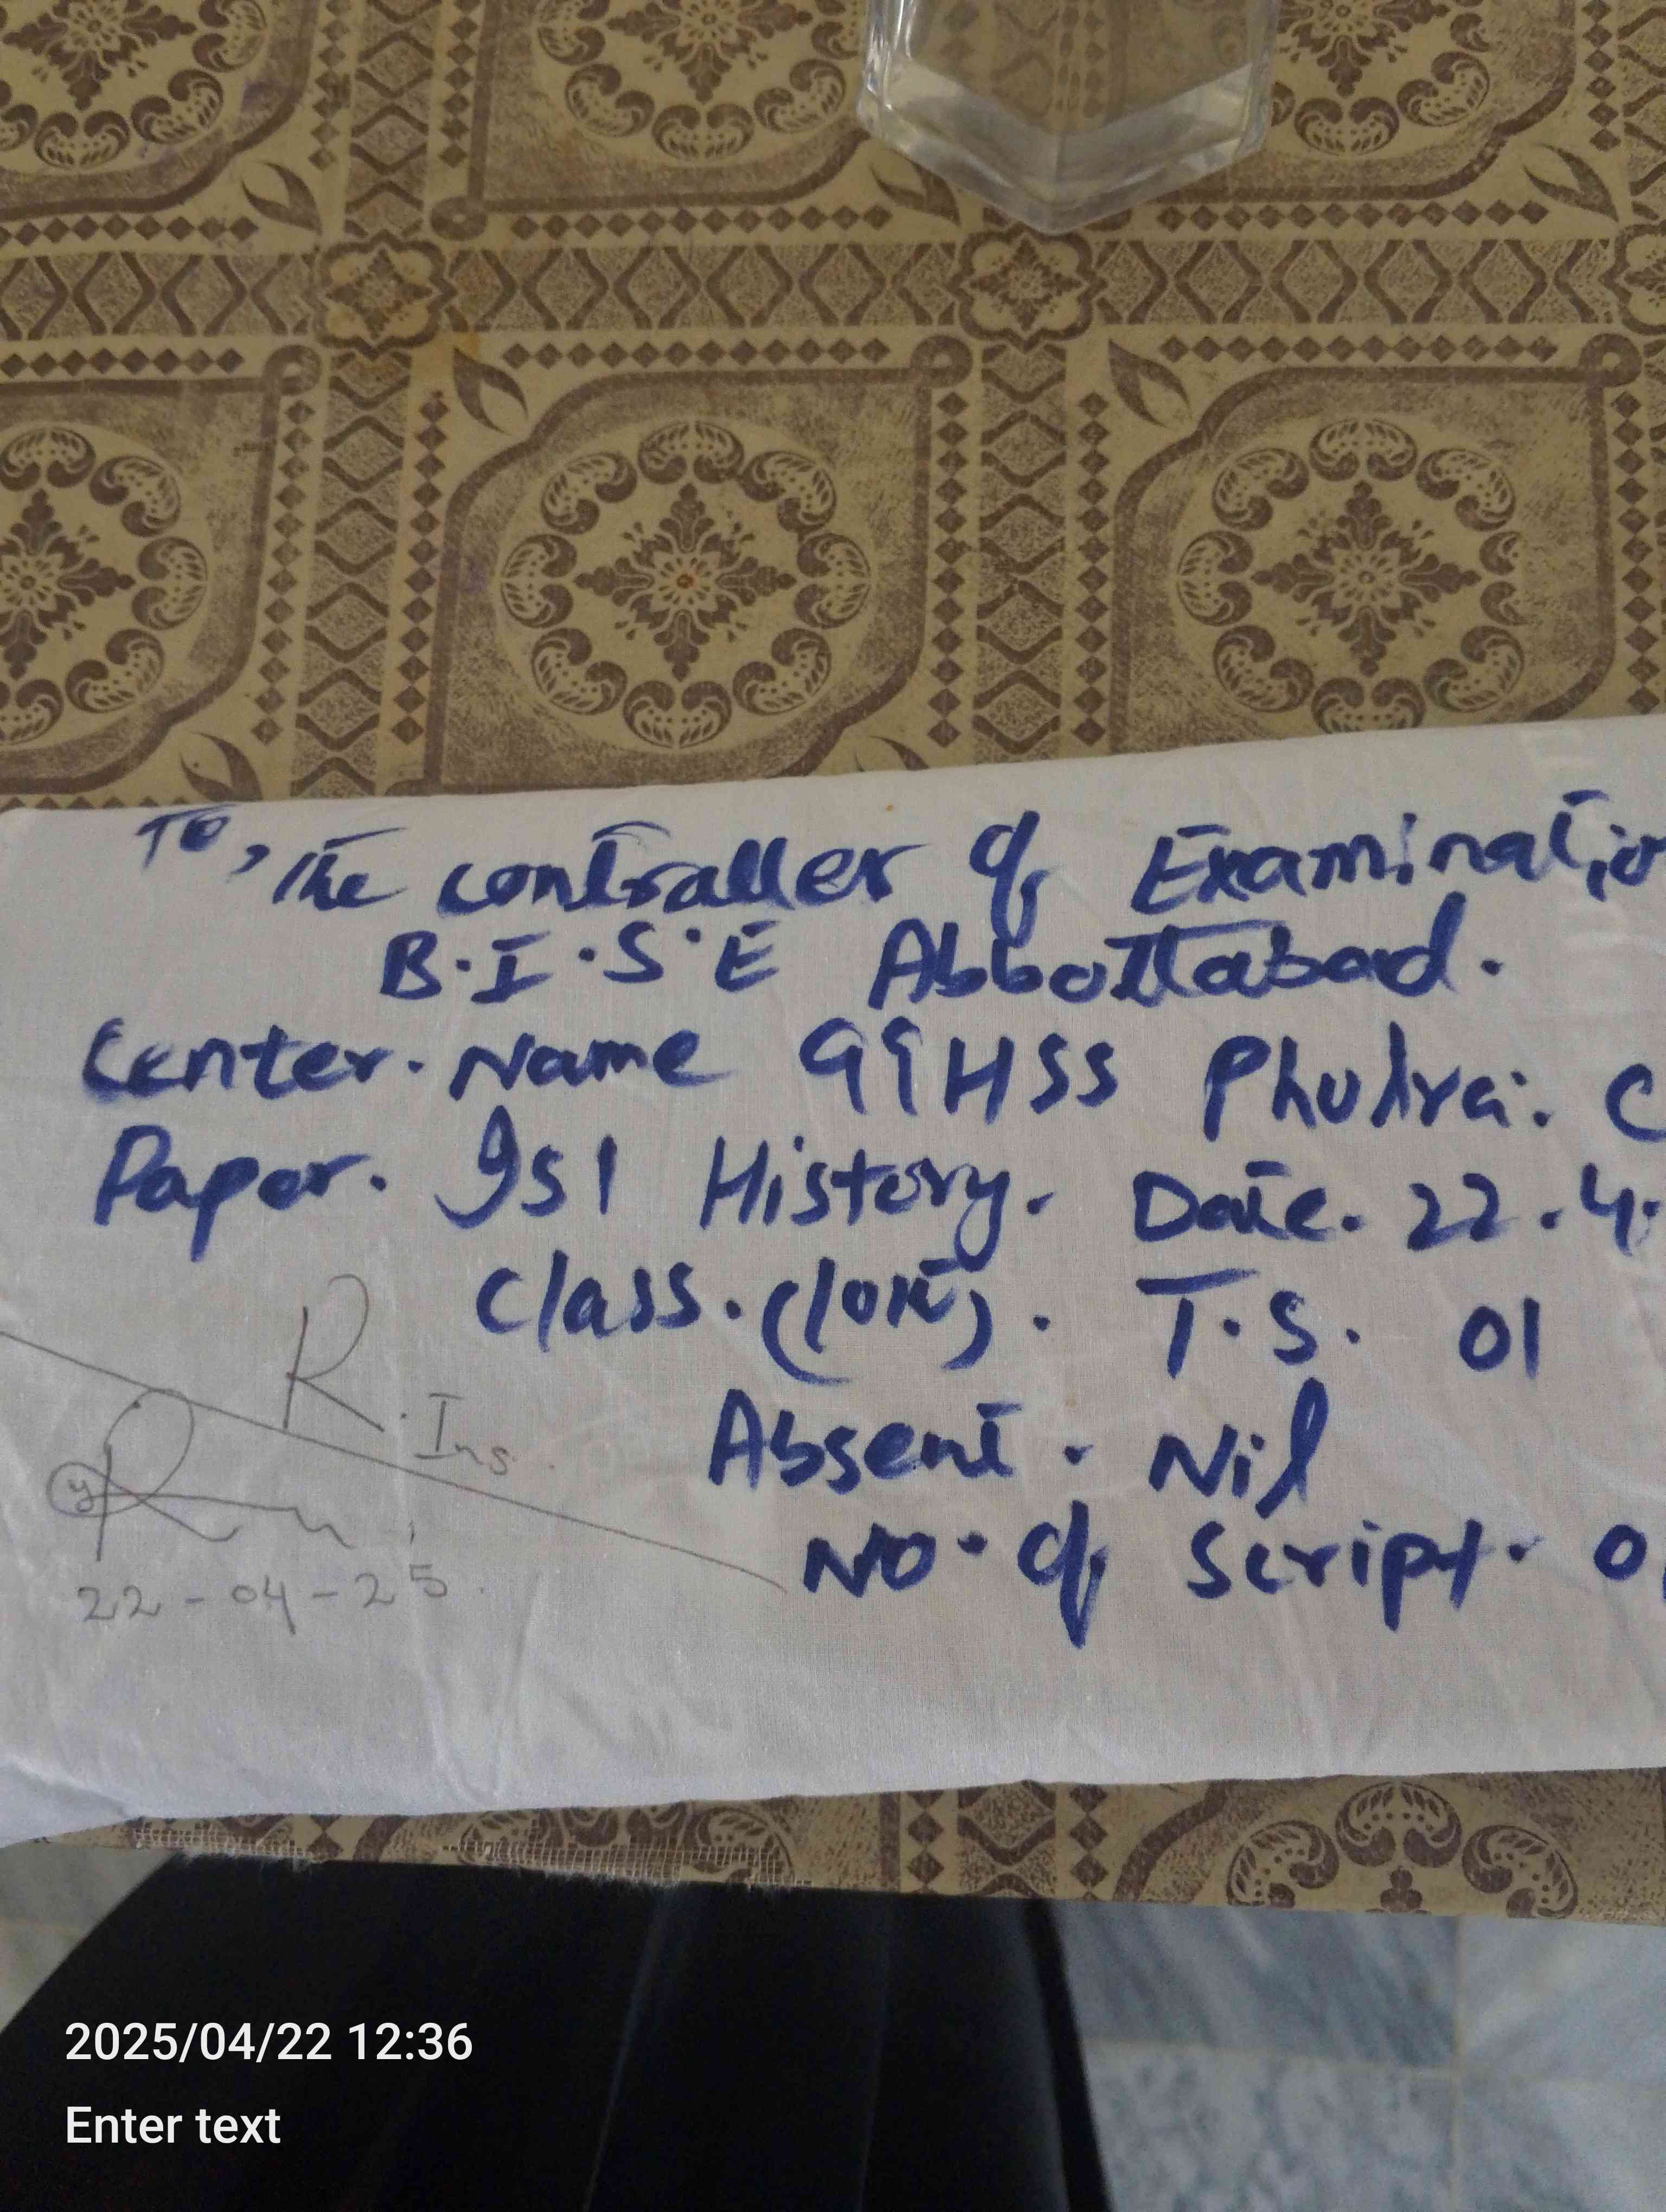 To, The Controller of Examinatio
B.I.S.E Abbottabad.
Center. Name GGHSS Phulra. C
Paper. Isl History. Date. 22.4.
Class. (10th). T.S. 01
Absent. Nil
No. of Script. 0
R. Ins.
22-04-25.
2025/04/22 12:36
Enter text